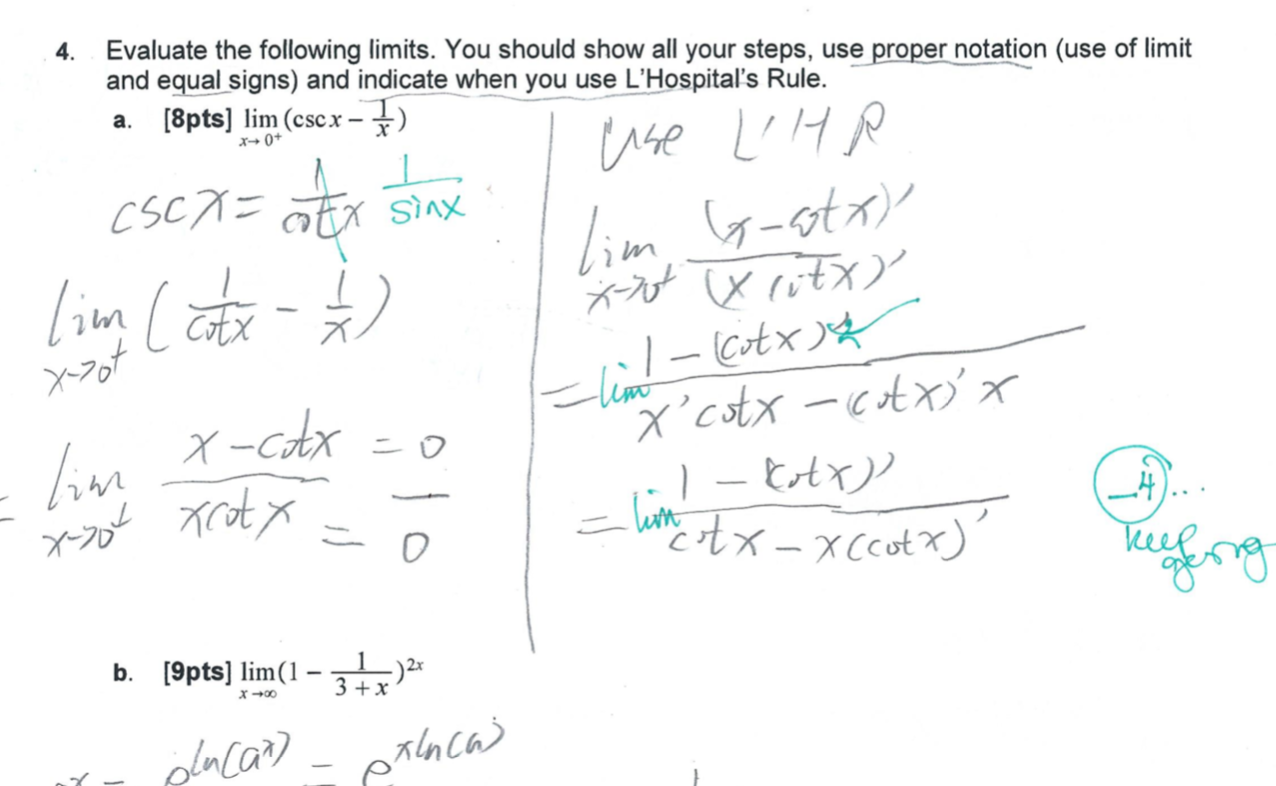 4. Evaluate the following limits. You should show all your steps, use proper notation (use of limit
and equal signs) and indicate when you use L'Hospital's Rule.
a. [8pts] lim x→0⁺ (csc x − 1/x)
csc x = 1/cotx 1/sinx
lim x→0⁺ (1/cotx − 1/x)
= lim x→0⁺ (x − cotx)/(x cotx) = 0/0
Use L'HR
lim x→0⁺ (x − cotx)'/(x cotx)'
= lim (1 − (cotx)')/(x'cotx − (cotx)'x)
= lim (1 − (cotx)')/(cotx − x(cotx)')
−4...
keep
going
b. [9pts] lim x→∞ (1 − 1/(3 + x))²ˣ
ln(aˣ) = e^(xln(a))